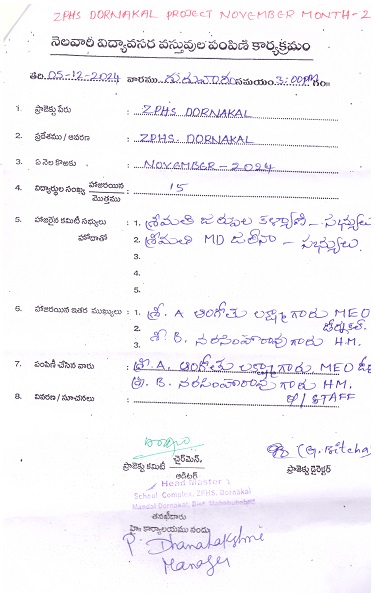 ZPHS DORNAKAL PROJECT NOVEMBER MONTH-2
నెలవారీ విద్యావసర వస్తువుల పంపిణి కార్యక్రమం
తేది. 05-12-2024 వారము గురువారం సమయం 3:00PM గం॥
1. ప్రాజెక్టు పేరు : ZPHS DORNAKAL
2. ప్రదేశము / ఆవరణ : ZPHS. DORNAKAL
3. ఏ నెల కొఱకు : NOVEMBER-2024
4. విద్యార్థుల సంఖ్య హాజరయిన / మొత్తము : 15
5. హాజరైన కమిటీ సభ్యులు : 1. శ్రీమతి కళ్యాణి - సభ్యులు
హోదాతో 2. శ్రీమతి MD - సభ్యులు.
3.
4.
5.
6. హాజరయిన ఇతర ముఖ్యులు : 1. శ్రీ. A ఆంగోతు లక్ష్మాగారు MEO
2.
3. శ్రీ. B. నరసింహారావు గారు H.M.
7. పంపిణి చేసిన వారు : శ్రీ. A. ఆంగోతు లక్ష్మాగారు MEO
శ్రీ. B. నరసింహారావు గారు HM.
8. వివరణ / సూచనలు : STAFF
ప్రాజెక్టు కమిటీ చైర్మెన్, / ఆడిటర్
ప్రాజెక్టు డైరెక్టర్
Head Master
School Complex, ZPHS. Dornakal
Mandal Dornakal, Dist. Mahabubabad
తనఖీదారు
హై॥ కార్యాలయము నందు
P. Dhanalakshmi
Manager